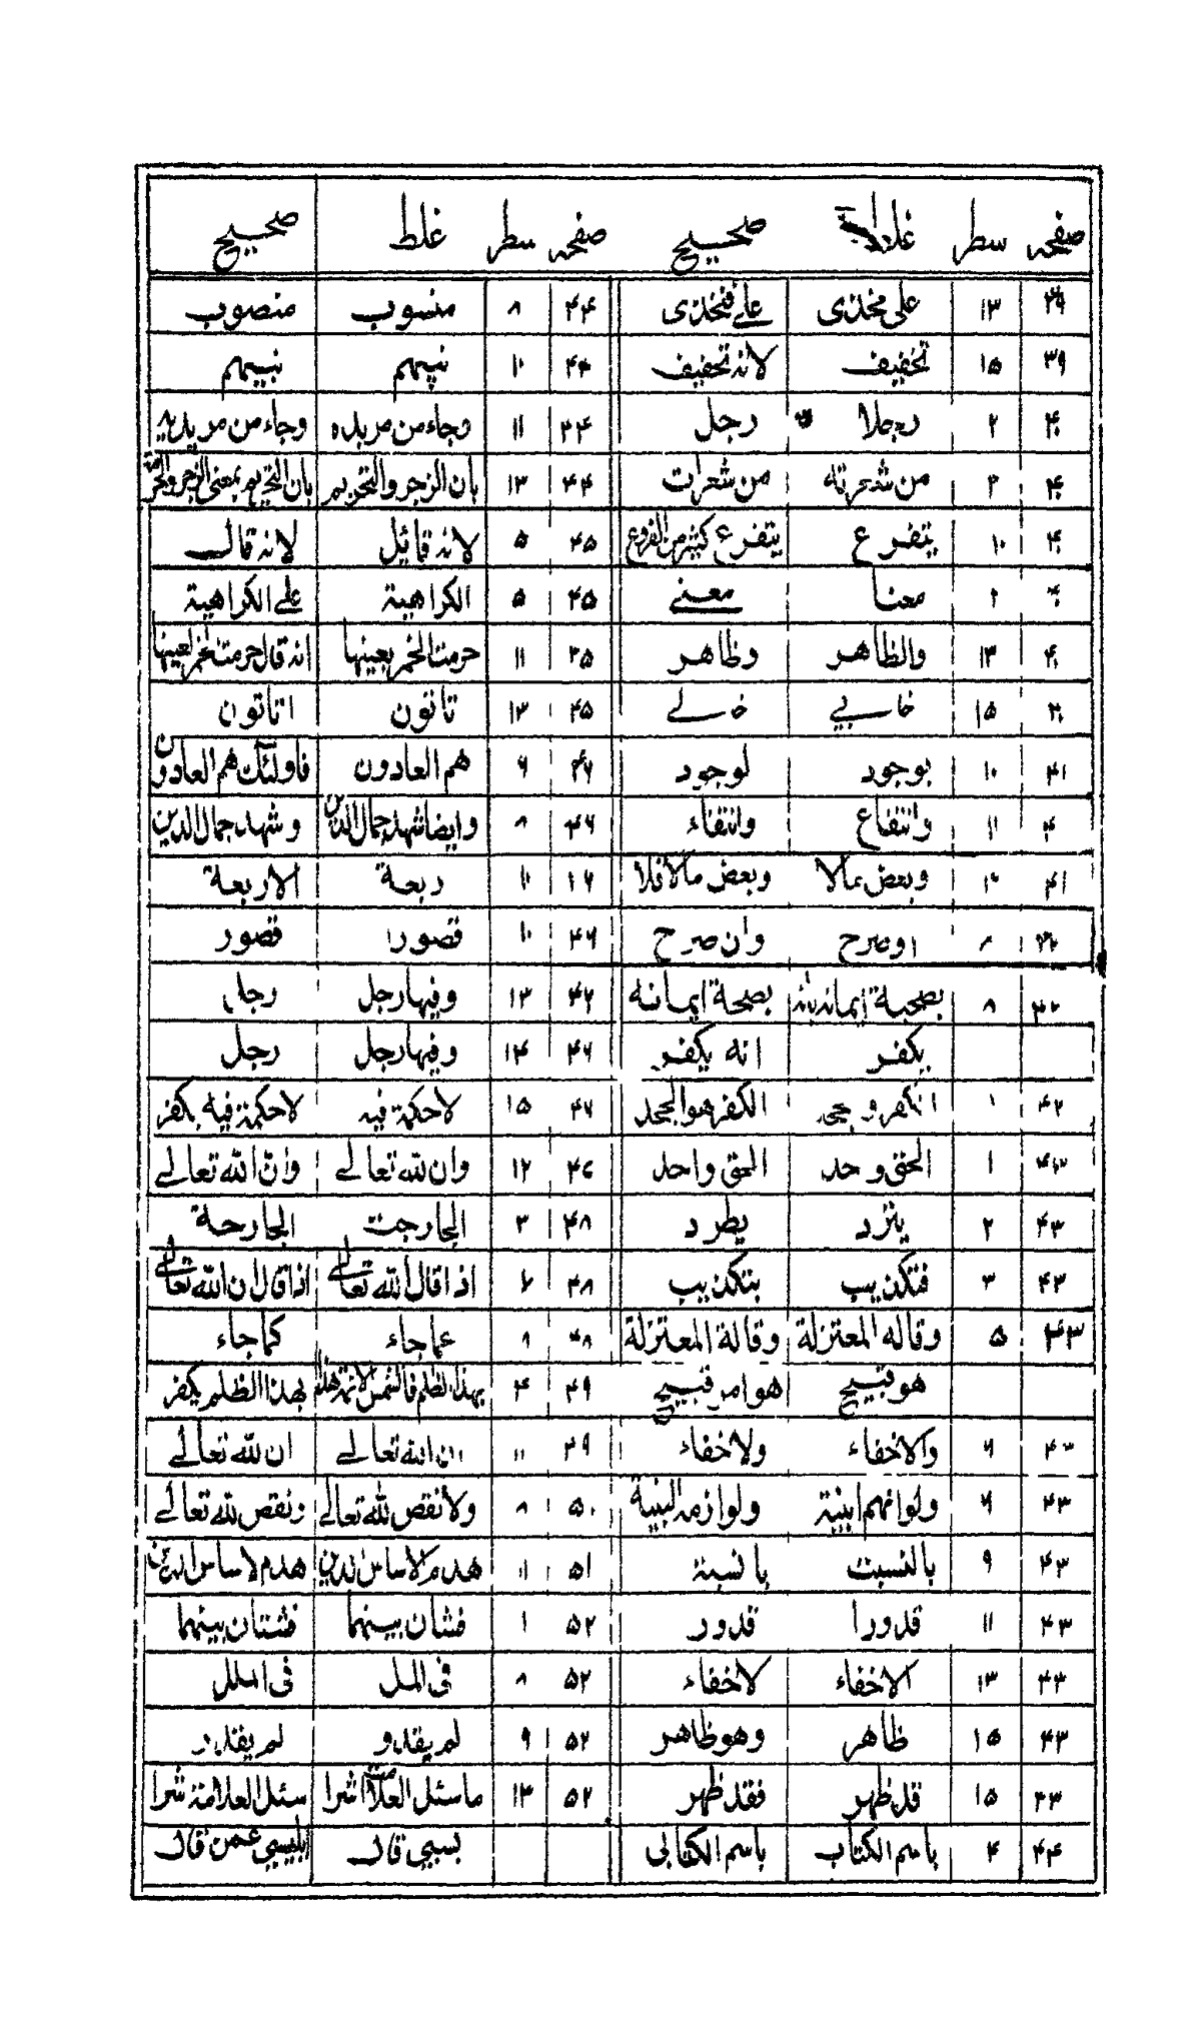 صفحہ سطر غلط صحیح صفحہ سطر غلط صحیح
۳۹ ۱۳ علی مخذی علے فتخذی ۴۴ ۸ منسوب منصوب
۳۹ ۱۵ تخفیف لانه تخفیف ۴۴ ۱۰ نپیهم نبیهم
۴۰ ۲ رجلا رجل ۴۴ ۱۱ وجاء من مربده وجاء من مریدیه
۴۰ ۲ من شعرته من شعرات ۴۴ ۱۳ بان الزجر والتحریم بان التحریم بمعنی الزجر
۴۰ ۱۰ یتفرع یتفرع کثیر من الفروع ۴۵ ۵ لانه قائیل لانه قال
۴۰ معنا معنے ۴۵ ۵ الکراهیة علے الکراهیة
۴۰ ۱۳ والظاهر وظاهر ۴۵ ۱۱ حرمت الخمر بعینها انه قال حرمت الخمر لعینها
۴۰ ۱۵ خابے خالے ۴۵ ۱۳ تاتون اتاتون
۴۱ ۱۰ بوجود لوجود ۴۶ ۶ هم العادون فاولئك هم العادون
۱۱ وانتفاع وانتفاء ۴۶ ۸ وایضا شهد جمال الدین وشهد جمال الدین
۴۱ وبعض مالا وبعض مالا فلا ۴۶ ۱۰ ربعة الاربعة
۸ اوصرح وان صرح ۴۶ ۱۰ قصورا قصور
۴۲ ۸ بصحبة ایمانه بصحة ایمانه ۴۶ ۱۳ وفیها رجل رجل
یکفر انه یکفر ۴۶ ۱۴ وفیها رجل رجل
۴۲ الکفر هو الجحد ۴۶ ۱۵ لا حکمة فیه لا حکمة فیه یکفر
۴۳ ۱ الحق وحد الحق واحد ۴۶ ۱۲ وان لله تعالے وان الله تعالے
۴۳ ۲ ینزد یطرد ۴۸ ۳ الجارجت الجارحة
۴۳ ۳ فتکذیب بتکذیب ۴۸ اذا قال الله تعالے اذا قال ان الله تعالے
۴۳ ۵ وقاله المعتزلة وقالة المعتزلة ۴۸ ۸ عماجاء کماجاء
هو قبیح هو امر قبیح ۴۹ ۴ بهذا الظلم بهذا الظلم یکفر
۴۳ ۶ والاخفاء ولاخفاء ۴۹ ۱۱ ان الله تعالے ان لله تعالے
۴۳ ۶ ولوانهم ابنیة ولوازمه البنیة ۵۰ ۸ ولا نقص لله تعالے ونقص لله تعالے
۴۳ ۹ بالنسبت بالنسبة ۵۱ ۱۱ هدم لاساس الدین هدم لاساس الدین
۴۳ ۱۱ قدورا قدور ۵۲ ۱ فشان بینهما فشتان بینهما
۴۳ ۱۳ الاخفاء لاخفاء ۵۲ ۸ فی المل فی الملل
۴۳ ۱۵ ظاهر وهو ظاهر ۵۲ ۹ لم یقدو لم یقدر
۴۳ ۱۵ قد ظهر فقد ظهر ۵۲ ۱۳ ما سئل العلامة اشرا سئل العلامة شرا
۴۴ ۴ باسم الکتاب باسم الکتابی بسبی قال ابلیسی عمن قال